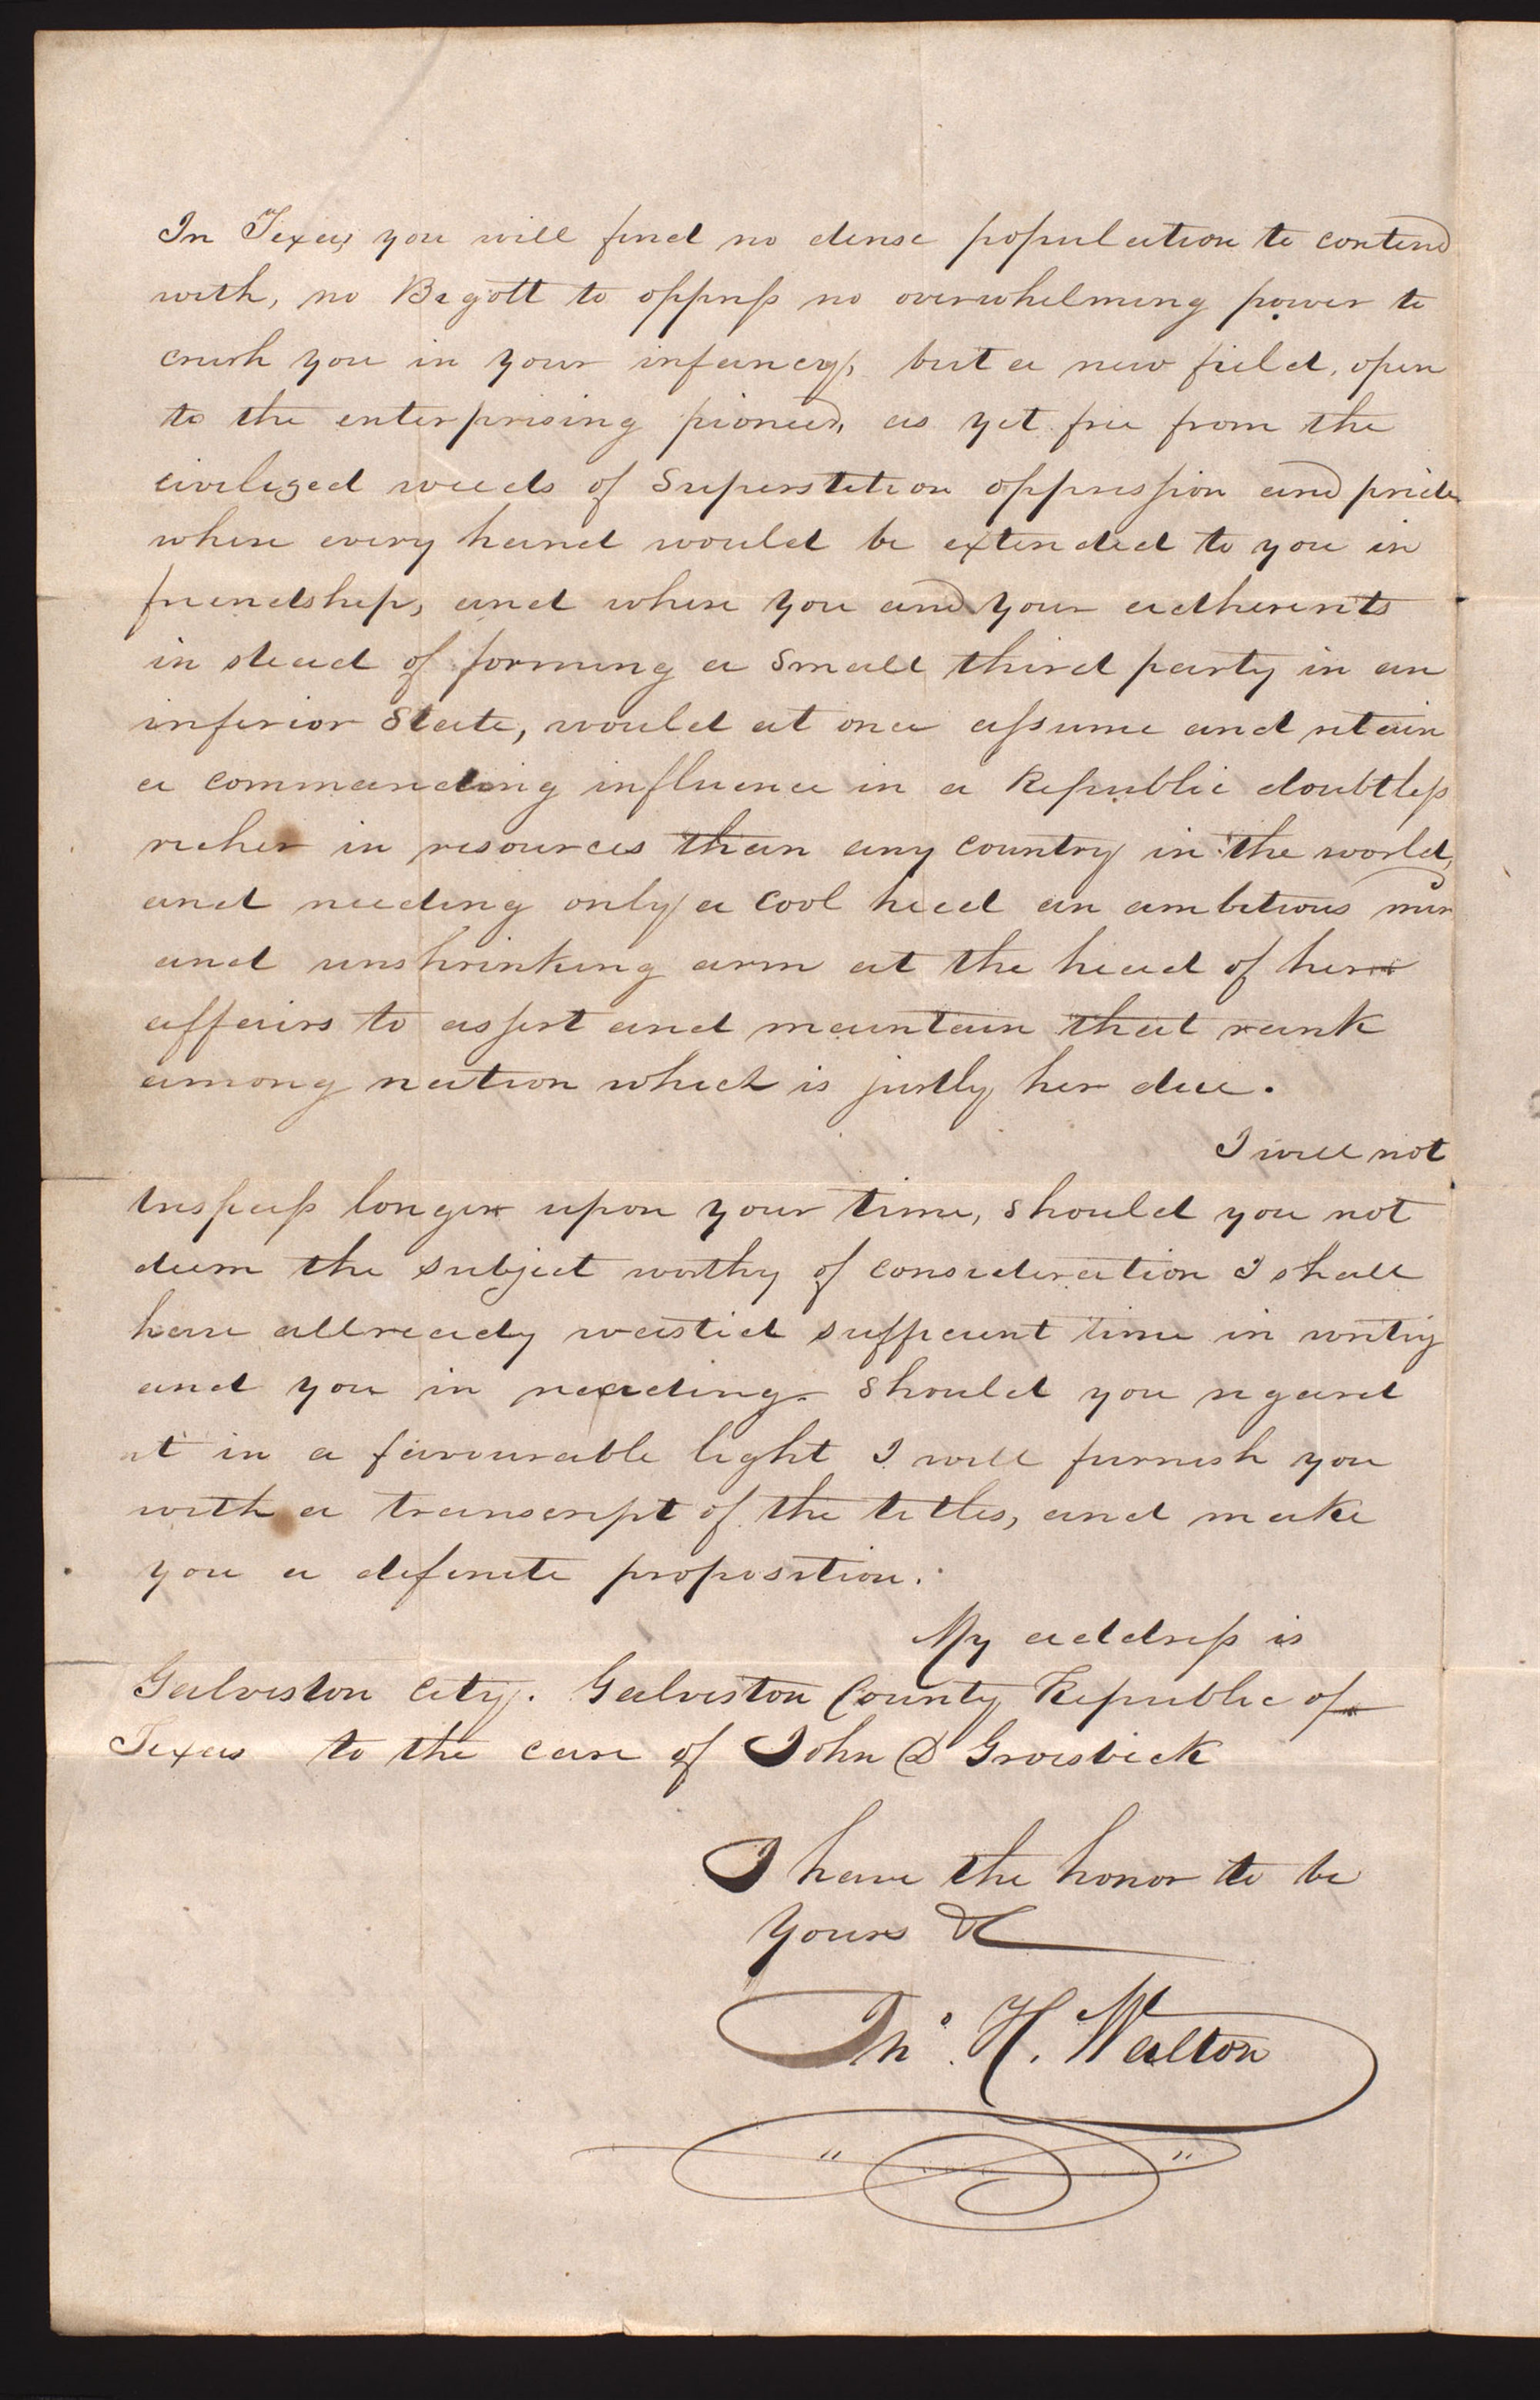 In Texas, you will find no dense population to contend
with, no Bigott to oppress no overwhelming power to
crush you in your infancy, but a new field, open
to the enterprising pioneer, as yet free from the
civilized weeds of Superstition oppression and pride
where every hand would be extended to you in
friendship, and where you and your adherents
in stead of forming a small third party in an
inferior State, would at once assume and retain
a commanding influence in a Republic doubtless
richer in resources than any country in the world,
and needing only a cool head an ambitious mind
and unshrinking arm at the head of her
affairs to assert and maintain that rank
among nation which is justly her due.
I will not
trespass longer upon your time, should you not
deem the subject worthy of consideration I shall
have allready wasted sufficient time in writing
and you in reading. Should you regard
it in a favourable light I will furnish you
with a transcript of the titles, and make
you a definite proposition.
My address is
Galveston City. Galveston County Republic of
Texas to the care of John D Groesbeck
I have the honor to be
Yours &c
Thos. H. Walton